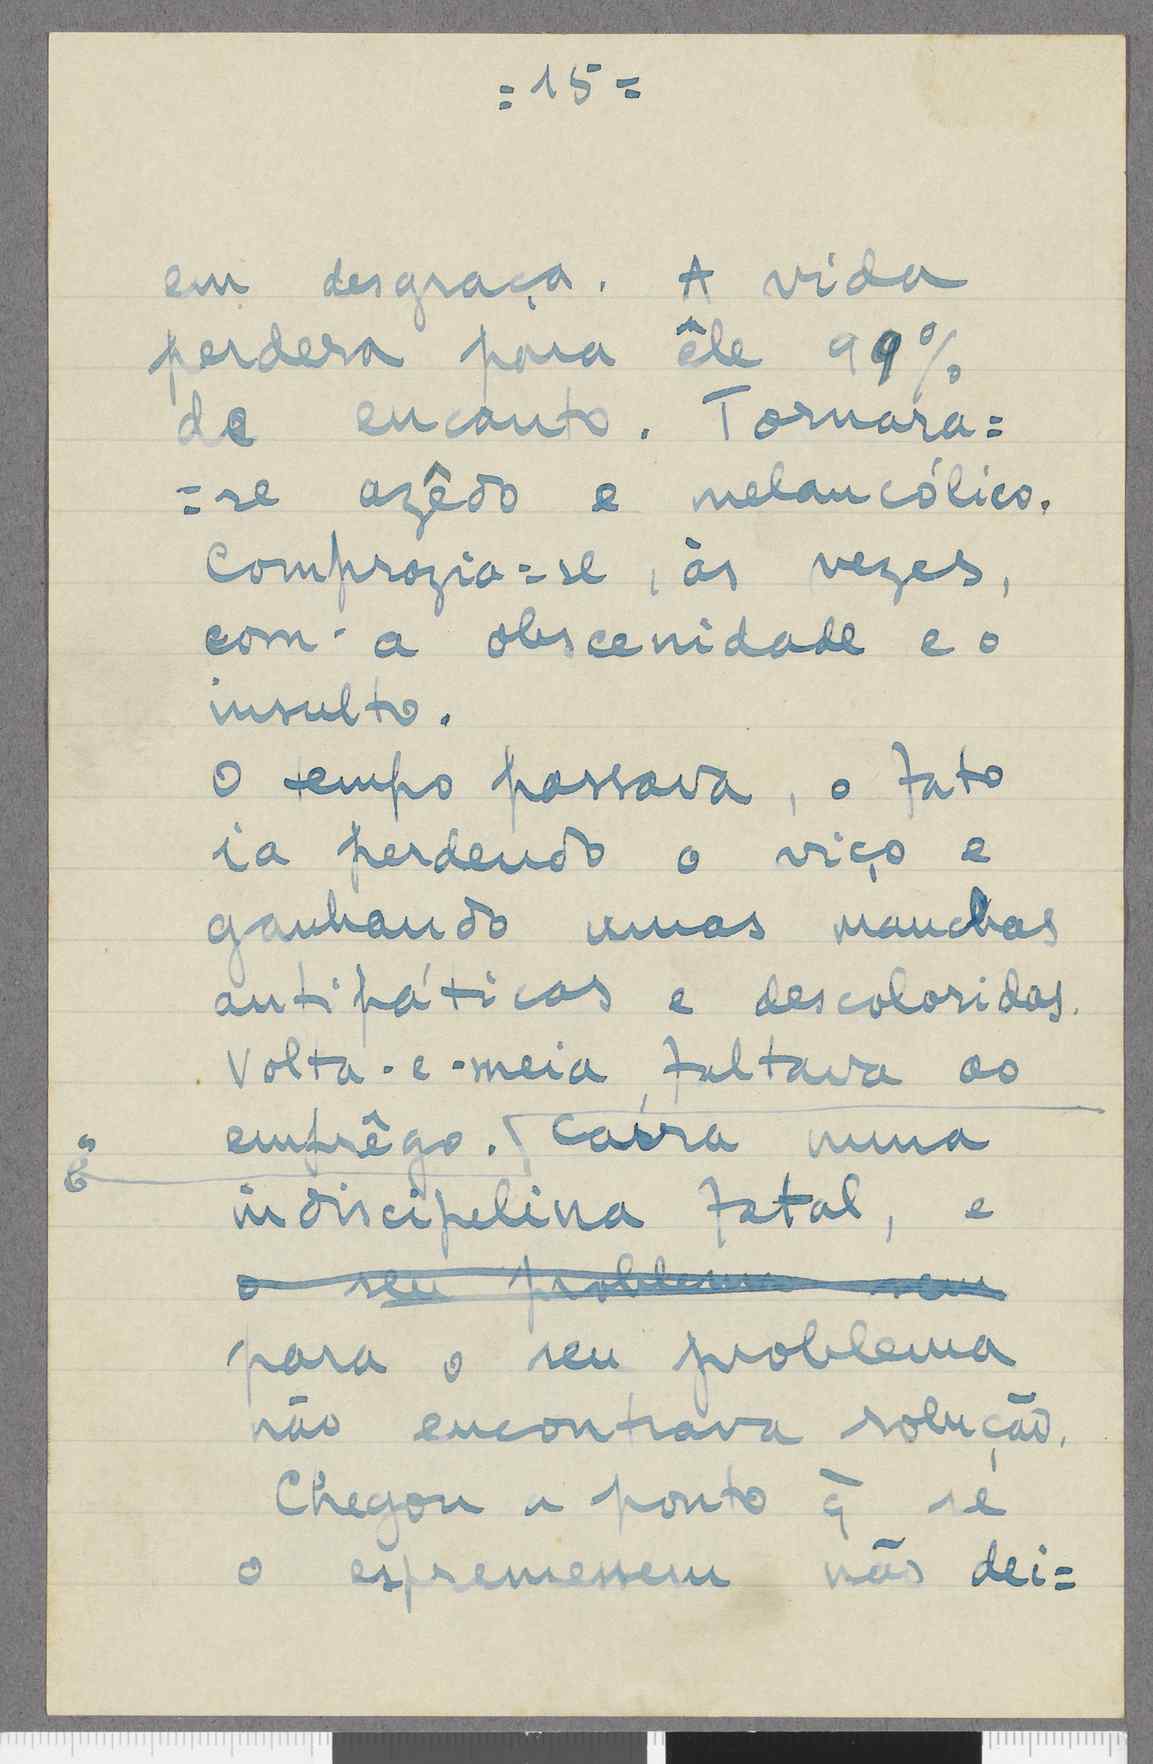 =15=
em desgraça. A vida
perdera para êle 99%
de encanto. Tornara=
=se azêdo e melancólico.
Comprazia=se, às vezes,
com a obscenidade e o
insulto.
O tempo passava, o fato
ia perdendo o viço e
ganhando umas manchas
antipáticas e descoloridas.
Volta-e-meia faltava ao
emprêgo. Caíra numa
indiscipelina fatal, e
o seu problema sem
para o seu problema
não encontrava solução.
Chegou a ponto q̃ se
o espremessem não dei=